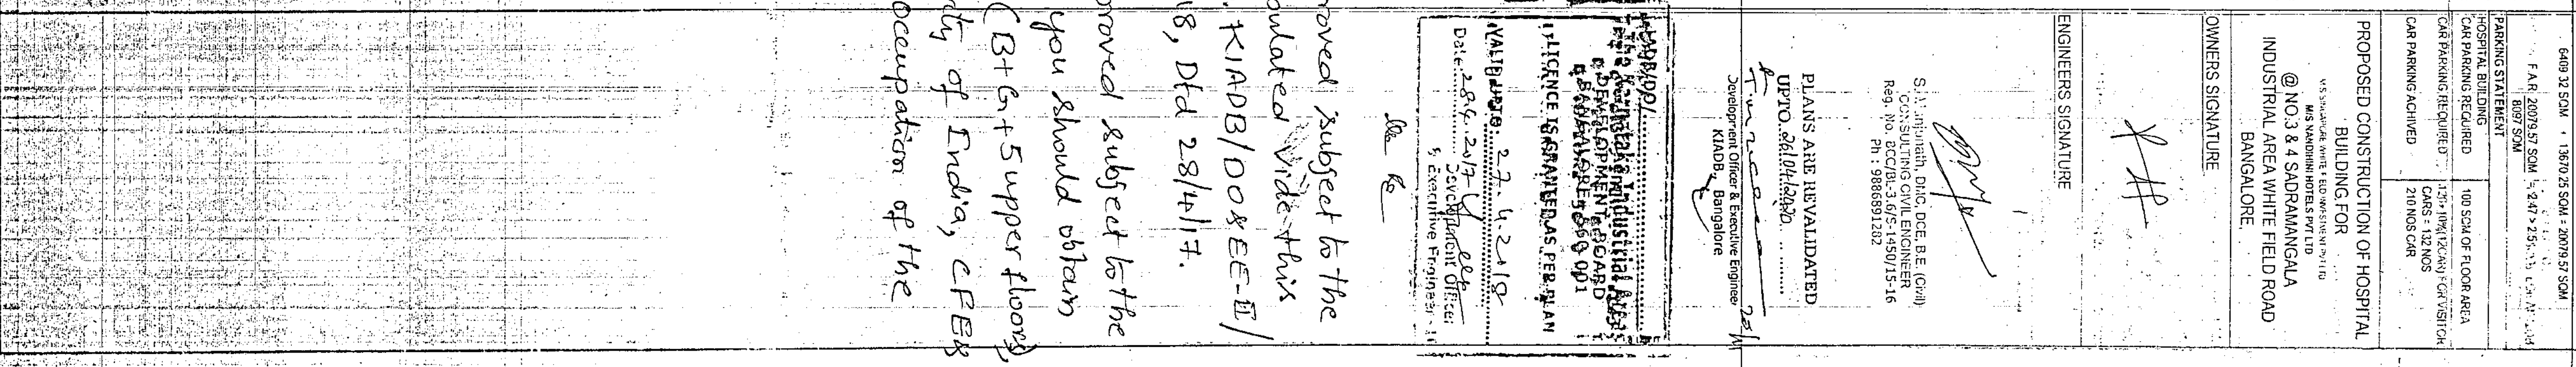 6409 32 SQM + 13670 25 SQM = 20079 57 SQM
F.A.R 20079.57 SQM = 2.47 > 2.5
8097 SQM
PARKING STATEMENT
HOSPITAL BUILDING
CAR PARKING REQUIRED 100 SQM OF FLOOR AREA
CAR PARKING REQUIRED FOR VISITOR
CARS = 132 NOS
CAR PARKING ACHIVED 210 NOS CAR
PROPOSED CONSTRUCTION OF HOSPITAL
BUILDING FOR
M/S NANDHINI HOTELS PVT LTD
@ NO.3 & 4 SADRAMANGALA
INDUSTRIAL AREA WHITE FIELD ROAD
BANGALORE
OWNERS SIGNATURE
ENGINEERS SIGNATURE
DMC, DCE, B.E. (Civil)
CONSULTING CIVIL ENGINEER
Reg. No. BCC/BL-3.6/S-1450/15-16
Ph : 9886891282
PLANS ARE REVALIDATED
UPTO 26/04/2020
Development Officer & Executive Engineer
KIADB, Bangalore
DEVELOPMENT BOARD
BANGALORE - 560 001
LICENCE IS GRANTED AS PER PLAN
VALID UPTO: 27.4.2018
Date: 28.4.2017
Development Officer
& Executive Engineer - II
roved subject to the
oulated vide this
. KIADB/DO&EE-II/
18, Dtd 28/4/17.
proved subject to the
you should obtain
(B+G+5 upper floors)
ity of India, CFE&
occupation of the